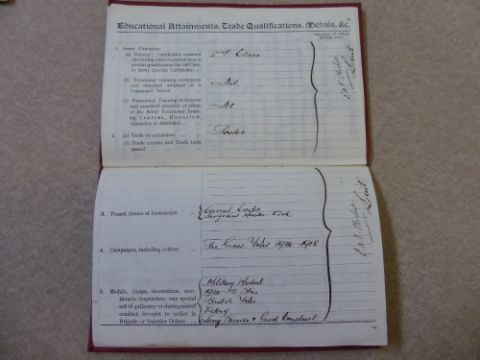 Educational Attainments, Trade Qualifications, Medals, &c.
Signature of Officer
1. Army Education
(a) General; Certificates awarded
(including subjects passed in as a
partial qualification for 1st Class,
or Army Special, Certificate)
2nd Class
(b) Vocational Training undergone
and standard attained at a
Command School
Nil
(c) Vocational Training undergone
and standard attained at either
of the Army Vocational Train-
ing Centres, Hounslow,
Chisledon or Aldershot
Nil
2. (a) Trade on enlistment
(b) Trade courses and Trade tests
passed
Lieut
3. Passed classes of Instruction
4. Campaigns, including actions
The Great War 1914-1918
5. Medals, clasps, decorations, men-
tions in despatches; any special
act of gallantry or distinguished
conduct brought to notice in
Brigade or Superior Orders
Military Medal
1914-15 Star
British War
Victory
Long Service & Good Conduct
Lieut